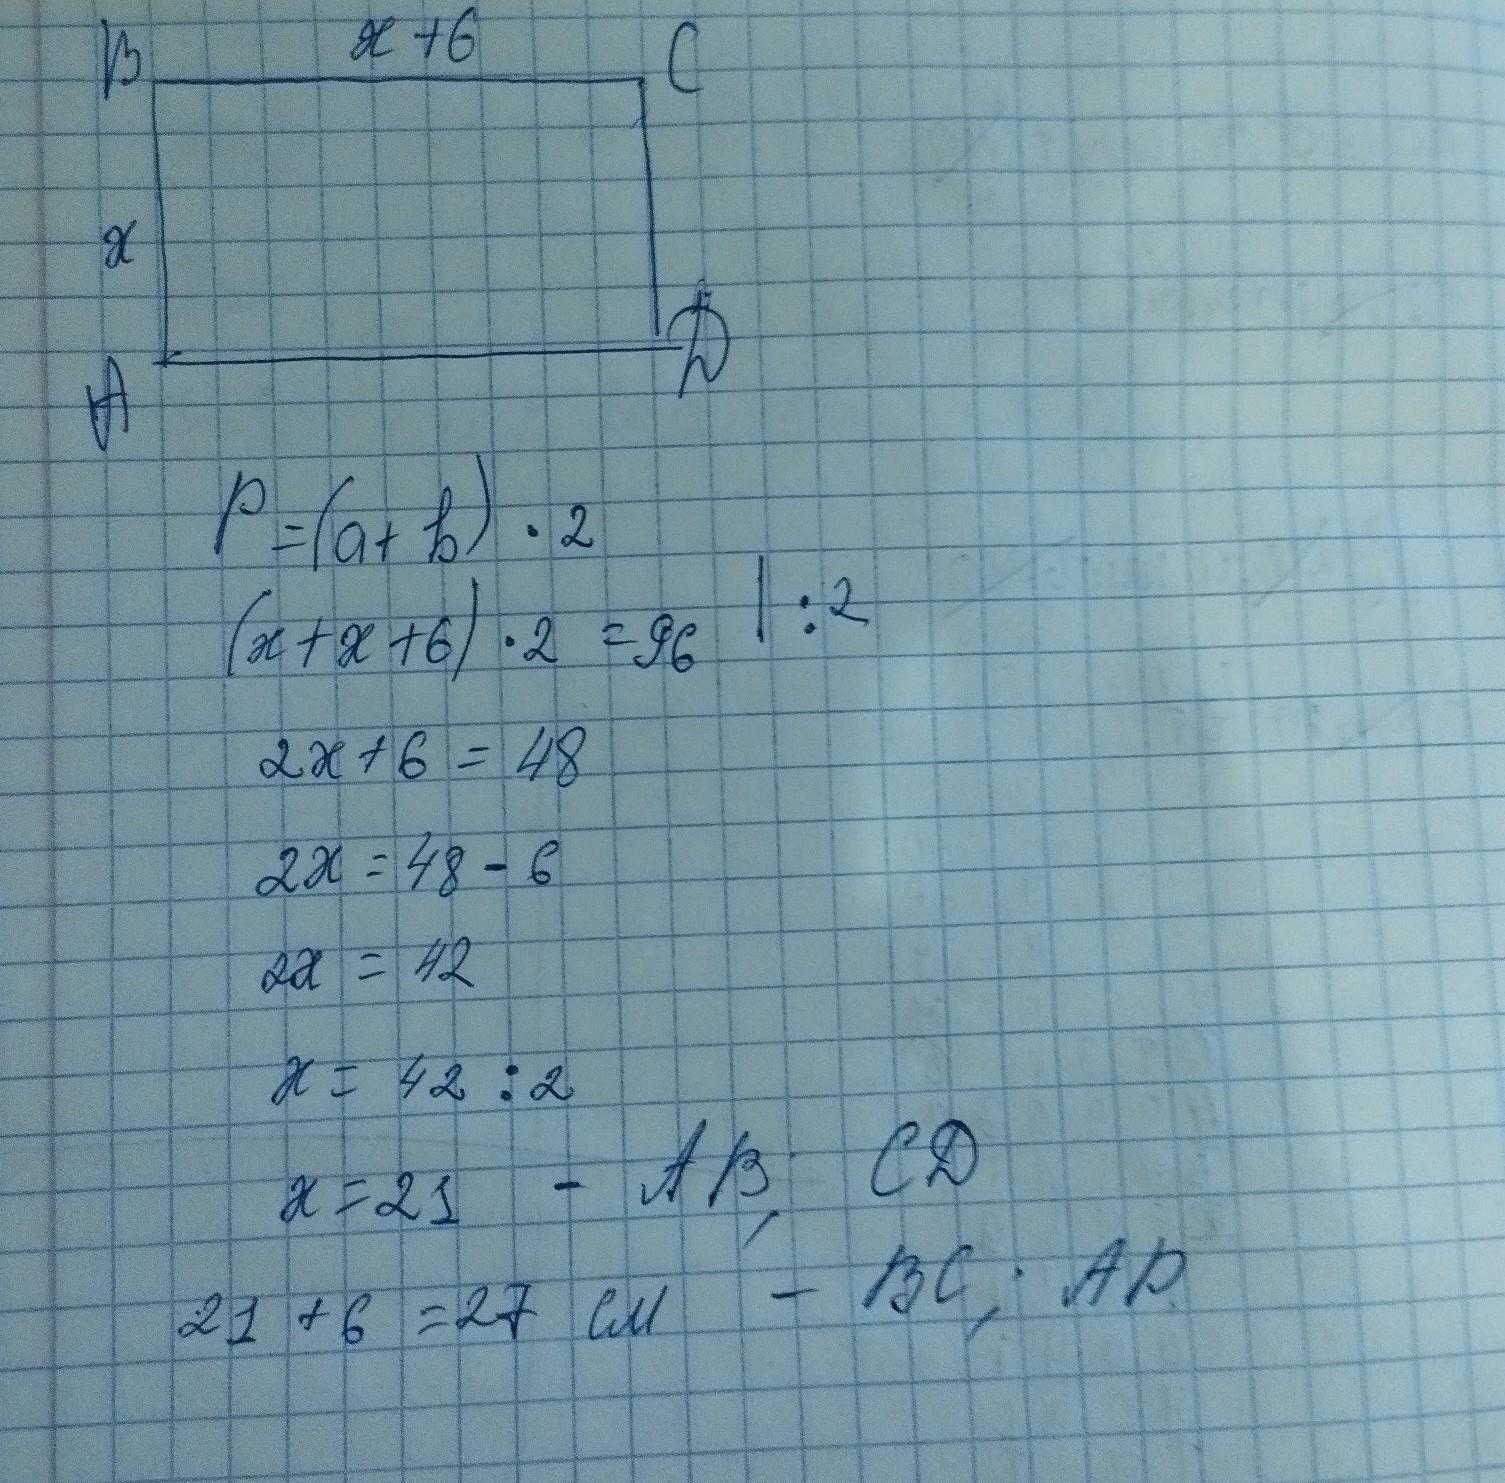 B x+6 C
x
A D
P=(a+b)·2
(x+x+6)·2=96 |:2
2x+6=48
2x=48-6
2x=42
x=42:2
x=21 - AB; CD
21+6=27 см - BC; AD